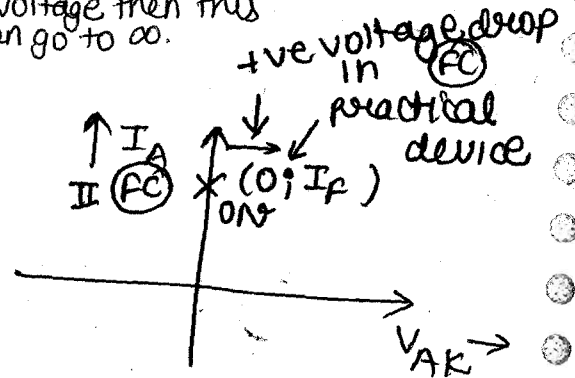 voltage then this
n go to ∞.
+ve voltage drop
in FC
practical
device
I_A
II FC (0; I_F)
ON
V_AK →